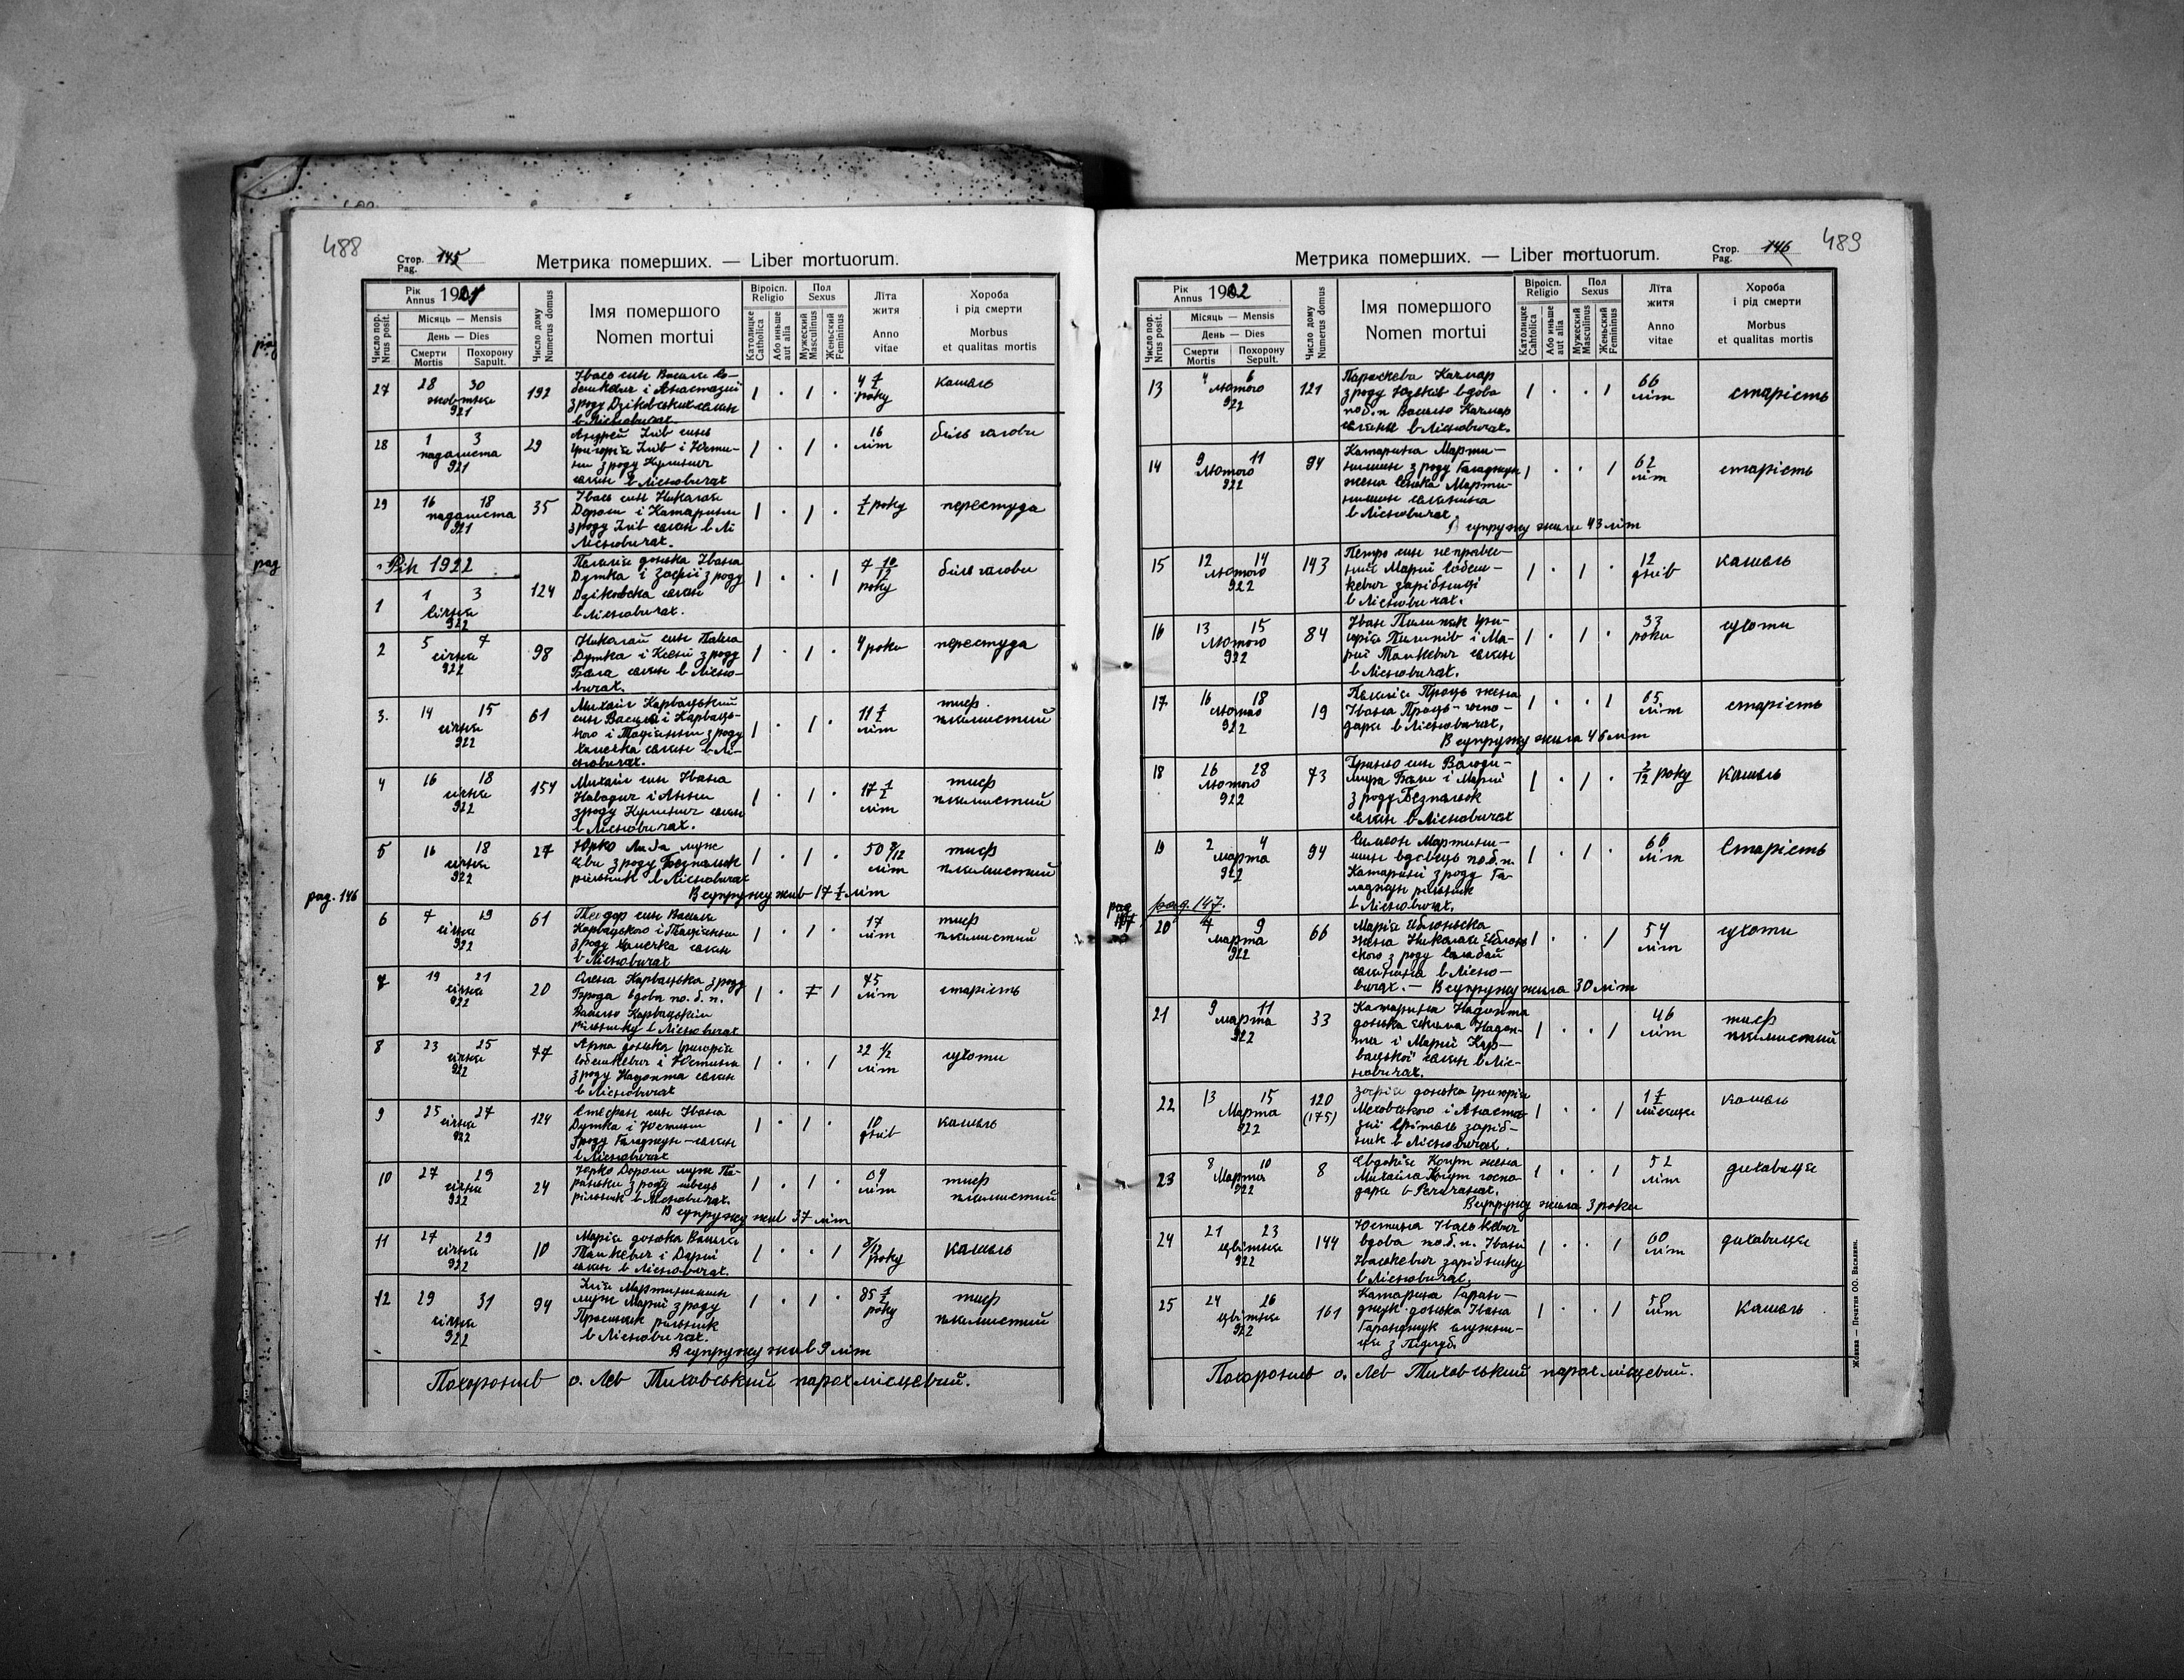 488
Стор. 145
Pag.
Метрика померших. — Liber mortuorum.
Число пор.
Nrus posit.
Рік
Annus 1921
Місяць — Mensis
День — Dies
Смерти
Mortis
Похорону
Sepult.
Число дому
Numerus domus
Імя помершого
Nomen mortui
Віроісп.
Religio
Католицке
Catholica
Або иньше
aut alia
Пол
Sexus
Мужеский
Masculinus
Женьский
Femininus
Літа
життя
Anno
vitae
Хороба
і рід смерти
Morbus
et qualitas mortis
27
28 30
жовтня
921
192
Івась син Василя Со-
і Анастазиї
з роду
1 · 1 ·
4 1/2
року
кашель
28
1 3
падолиста
921
29
Андрей Ілів син
Григорія Ілів і Юсти-
ни з роду Кулинич
селян в Лісновичах
1 · 1 ·
16
літ
біль голови
29
16 18
падолиста
921
35
Івась син Николая
Дорош і Катарини
з роду Ілів селян в Лі
Лісновичах.
1 · 1 ·
1/2 року
перестуда
Рік 1922
1
1 3
січня
922
124
Пелагія донька Івана
Дутка і Зофії з роду
селян
в Лісновичах.
1 · · 1
7 10/12
року
біль голови
2
5 7
січня
922
98
Николай син Павла
Дутка і Ксенї з роду
Бала селян в Лісно-
вичах.
1 · 1 ·
4 роки
перестуда
3.
14 15
січня
922
61
Михайло Карвацький
син Василя Карваць-
кого і з роду
селян в Лі-
сновичах.
1 · 1 ·
11 1/2
літ
тиф
плямистий
4
16 18
січня
922
154
Михайло син Івана
і Анни
з роду Кулинич селян
в Лісновичах.
1 · 1 ·
17 1/2
літ
тиф
плямистий
5
16 18
січня
922
27
Юрко муж
Еви з роду Безпалюк
рільник в Лісновичах
1 · 1 ·
50 8/12
літ
тиф
плямистий
В супружу жив 17 1/2 літ
pag. 146
6
7 19
січня
922
61
Теодор син Василя
Карвацького і
з роду селян
в Лісновичах
1 · 1 ·
17
літ
тиф
плямистий
7
19 21
січня
922
20
Олена Карвацька з роду
Брода вдова по б. п.
Василю Карвацькім
рільнику в Лісновичах
1 · 1
75
літ
старість
8
23 25
січня
922
77
Анна донька Григорія
і Юстина
з роду Надопта селян
в Лісновичах
1 · · 1
22 1/2
літ
сухоти
9
25 27
січня
922
124
Стефан син Івана
Дутка і Юстини
з роду Галаджун — селян
в Лісновичах
1 · 1 ·
10
днів
кашель
10
27 29
січня
922
24
Юрко Дорош муж Па-
раньки з роду Швець
рільник в Лісновичах.
1 · 1 ·
літ
тиф
плямистий
В супружу жив 37 літ
11
27 29
січня
922
10
Марія донька Василя
Танкевич і Дариї
селян в Лісновичах.
1 · · 1
8/12
року
кашель
12
29 31
січня
922
94
Ілія Мартинишин
муж Мариї з роду
рільник
в Лісновичах.
1 · 1 ·
85 1/2
року
тиф
плямистий
В супружу жив 9 літ
Похоронив о. Лев Тиховський парох місцевий.
Метрика померших. — Liber mortuorum.
Стор. 146
Pag.
489
Число пор.
Nrus posit.
Рік
Annus 1922
Місяць — Mensis
День — Dies
Смерти
Mortis
Похорону
Sepult.
Число дому
Numerus domus
Імя помершого
Nomen mortui
Віроісп.
Religio
Католицке
Catholica
Або иньше
aut alia
Пол
Sexus
Мужеский
Masculinus
Женьский
Femininus
Літа
житя
Anno
vitae
Хороба
і рід смерти
Morbus
et qualitas mortis
13
4 6
лютого
922
121
Параскева Качмар
з роду вдова
по б. п Василю Качмар
селянин в Лісновичах.
1 · · 1
66
літ
старість
14
9 11
лютого
922
94
Катарина Марти-
нишин з роду Галаджун
жена Сенька Марти-
нишин селянина
в Лісновичах.
1 · · 1
62
літ
старість
В супружу жили 43 літ
15
12 14
лютого
922
143
Петро син неправе-
ний Мариї
зарібниці
в Лісновичах.
1 · 1 ·
12
днів
кашель
16
13 15
лютого
922
84
Іван Пилипів Гри-
горія Пилипів і Ма-
риї Танкевич селян
в Лісновичах.
1 · 1 ·
33
роки
сухоти
17
16 18
лютого
922
19
Пелагія Проць жена
Івана Проць — госпо-
даря в Лісновичах.
1 · · 1
65
літ
старість
В супружу жила 46 літ
18
26 28
лютого
922
73
Гринько син Володи-
мира Бали і Мариї
з роду Безпалюк
селян в Лісновичах
1 · 1 ·
2/12 року
кашель
19
2 4
марта
922
94
Симеон Мартини-
шин вдовець по б. п.
Катарині з роду Га-
ладжун рільник
в Лісновичах.
1 · 1 ·
66
літ
Старість
pag. 147.
20
7 9
марта
922
66
Марія Яблоньська
жена Николая Яблонь
ского з роду
селянина в Лісно-
вичах. — В супружу жила 30 літ
1 · · 1
54
літ
сухоти
21
9 11
марта
922
33
Катарина Надопта
донька Якима Надоп-
та і Мариї Кар-
вацької селян в Ліс-
новичах.
1 · · 1
46
літ
тиф
плямистий
22
13 15
Марта
922
120
(175)
Зофія донька Григорія
Меховського і Анаста-
зиї заріб-
ник в Лісновичах.
1 · · 1
1 1/2
місяця
кашель
23
8 10
Марта
922
8
Евдокія Когут жена
Михайла Когут госпо-
даря в Речичанах.
1 · · 1
52
літ
дихавиця
В супружу жила 3 роки
24
21 23
цвітня
922
144
Юстина Іваськевич
вдова по б. п. Івані
Іваськевич зарібнику
в Лісновичах.
1 · · 1
60
літ
дихавиця
25
24 26
цвітня
922
161
Катарина Гаран-
джук донька Івана
Гаранджук служни-
ця з
1 · · 1
літ
кашель
Похоронив о. Лев Тиховський парох місцевий.
Жовква — Печатня ОО. Василиян.